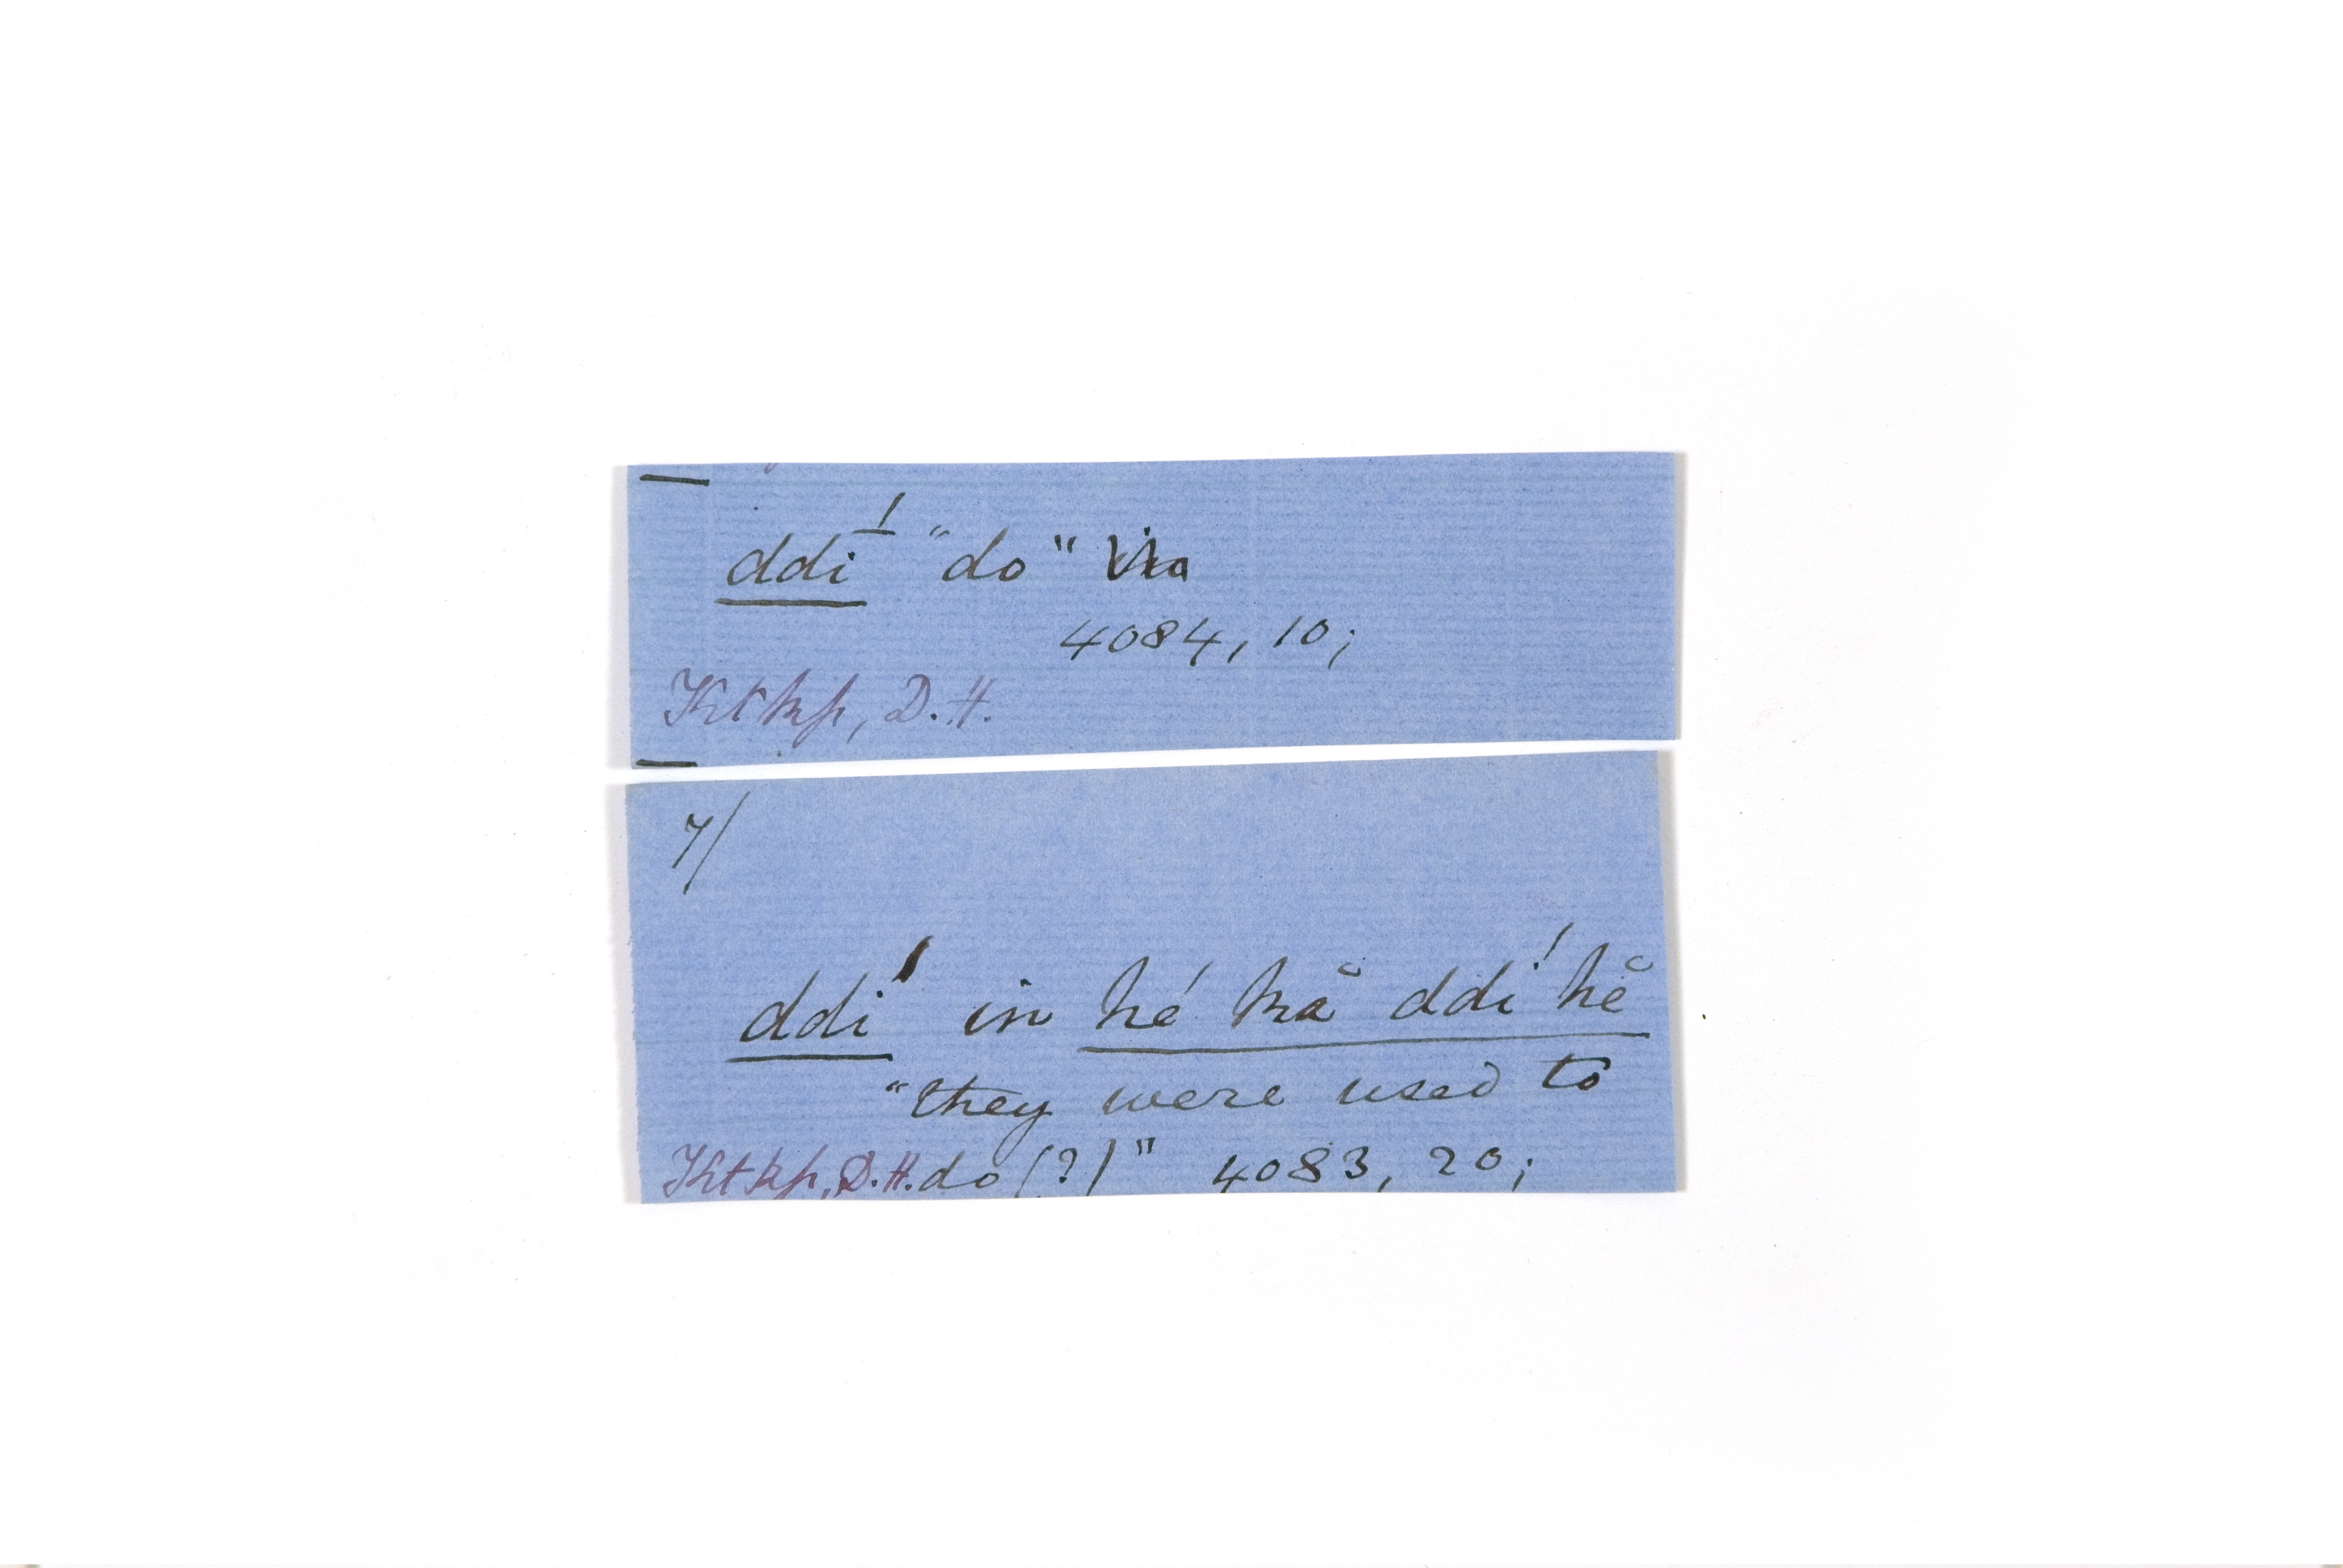 ddí "do"
4084, 10;
Ktkp, D.H.
7/
ddí in hé kă ddí hĕ
"they were used to
Ktkp, D.H. do (?)" 4083, 20;